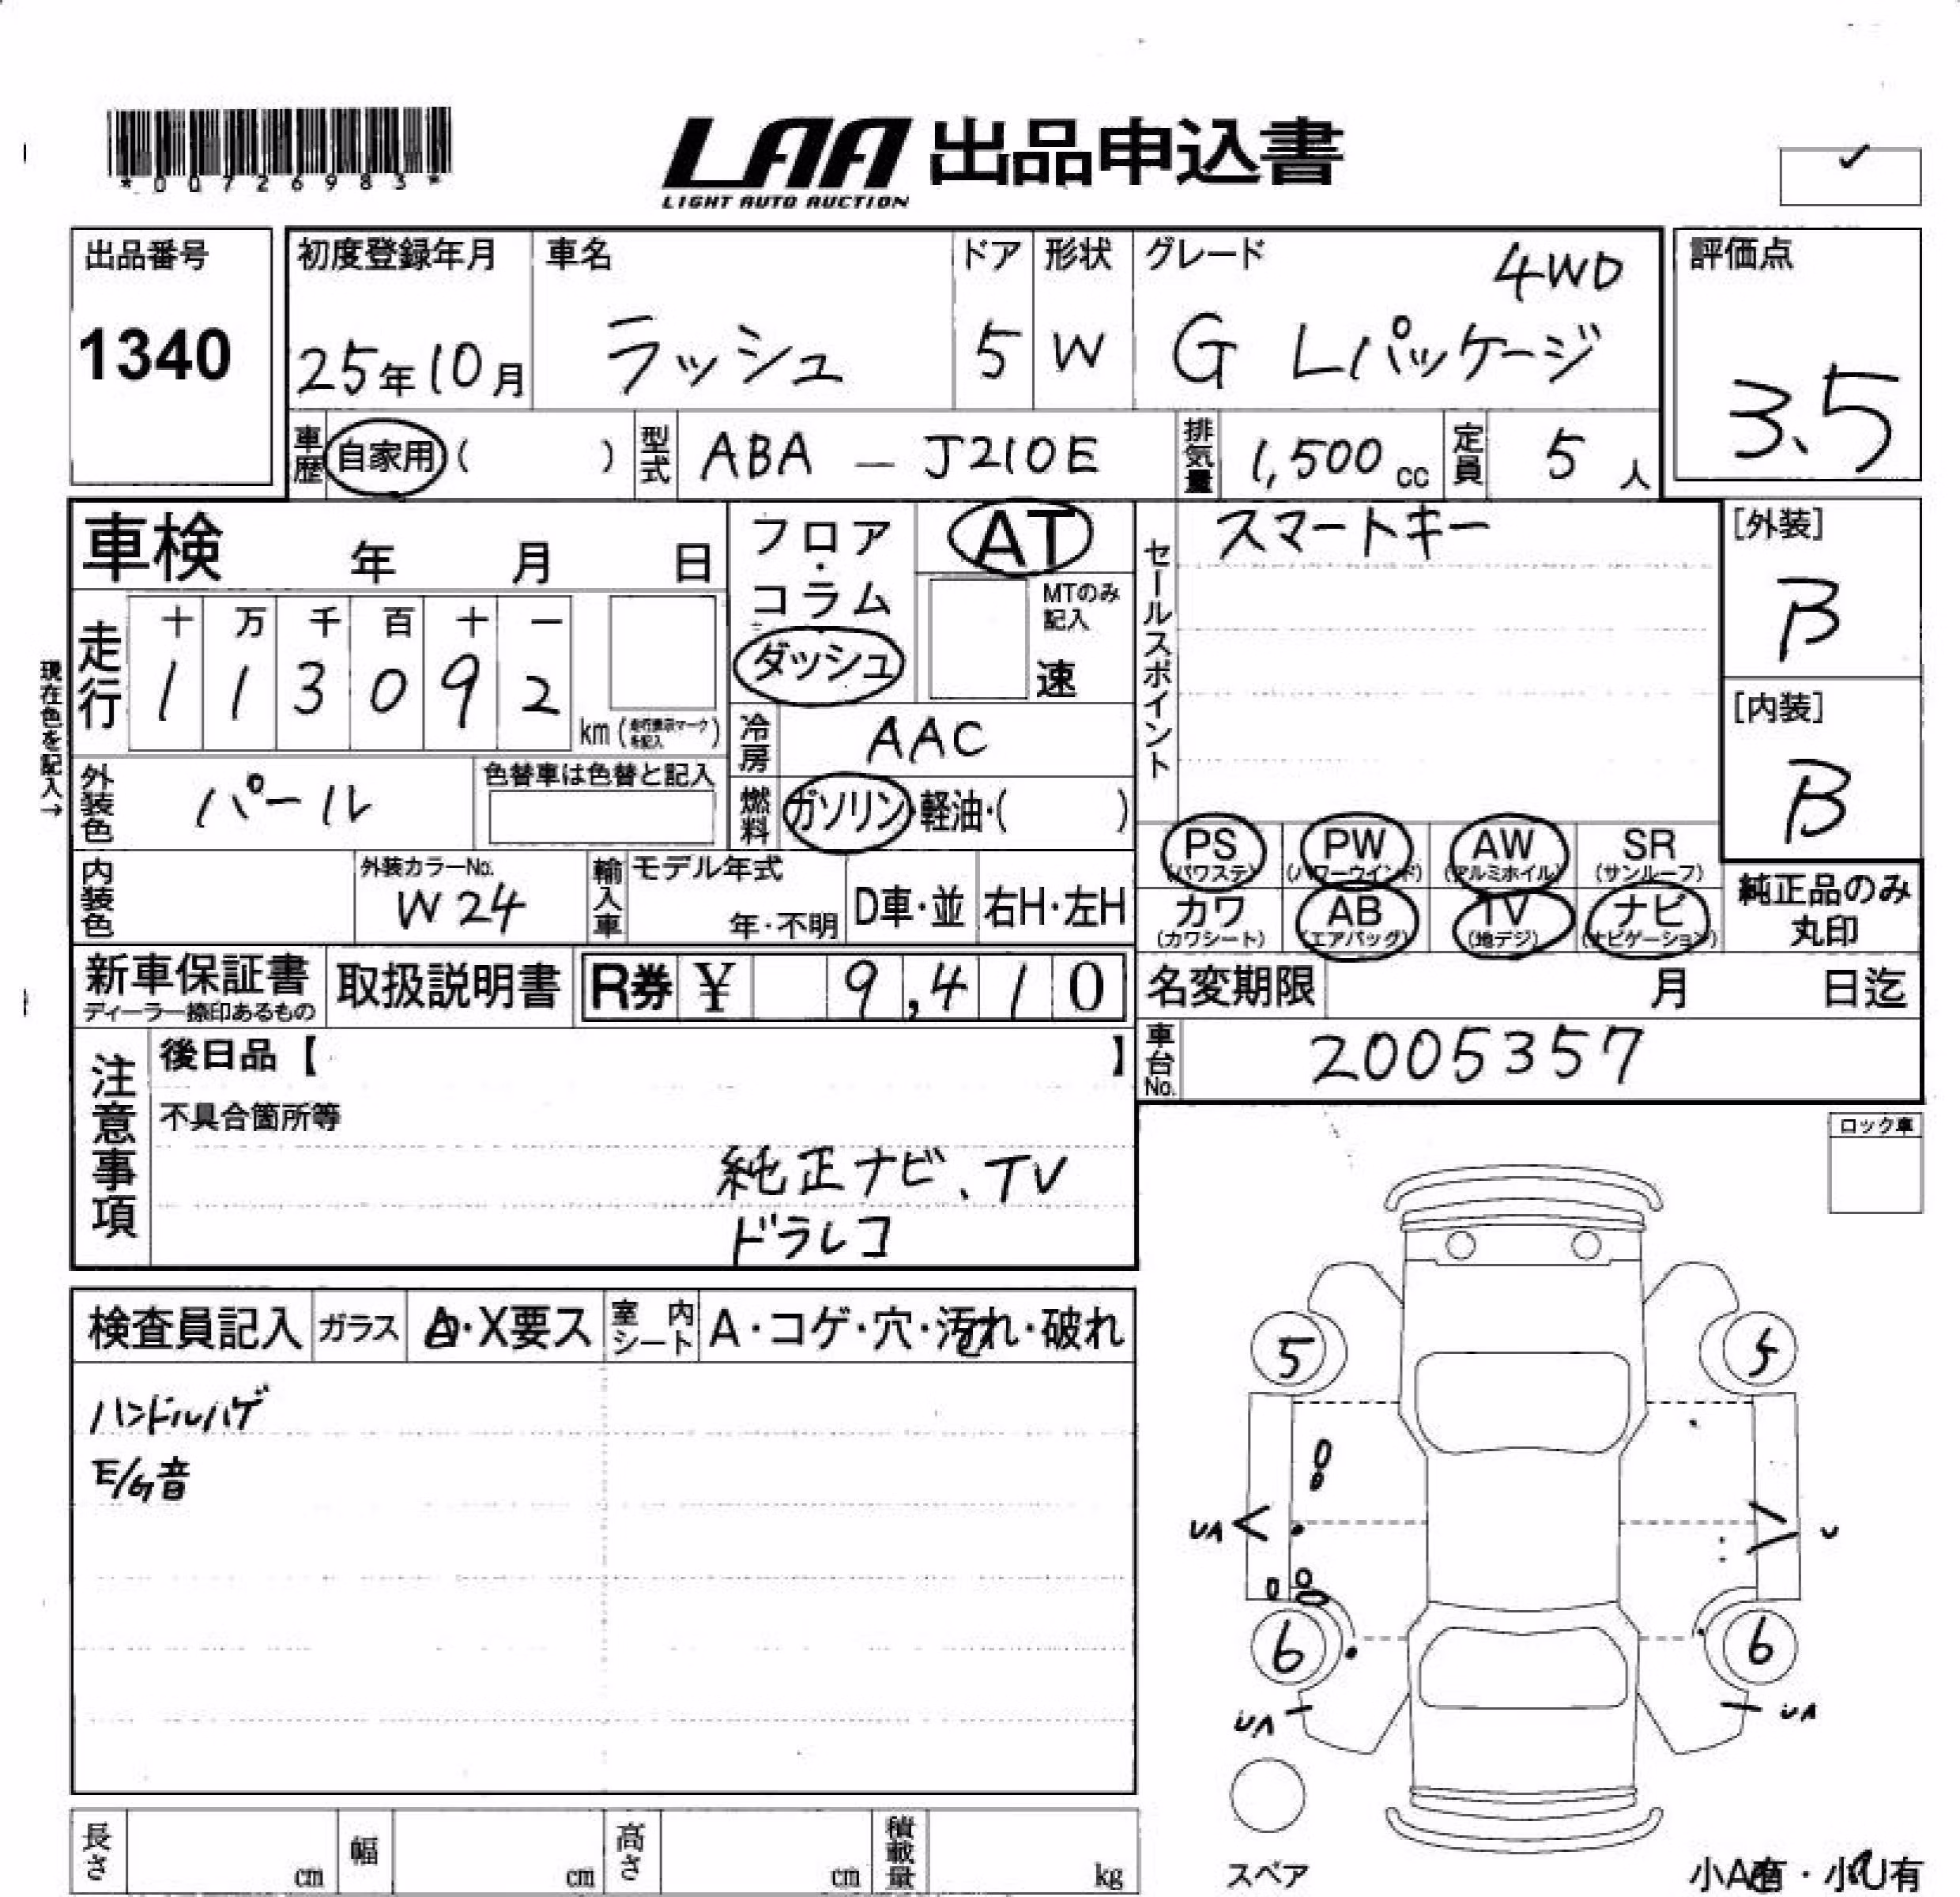 *00726983*
LAA 出品申込書
LIGHT AUTO AUCTION
出品番号
1340
初度登録年月
25年10月
車名
ラッシュ
ドア
5
形状
W
グレード
4WD
G Lパッケージ
評価点
3.5
車歴
自家用 ( )
型式
ABA - J210E
排気量
1,500 cc
定員
5 人
車検 年 月 日
走行
十 万 千 百 十 一
1 1 3 0 9 2
km (走行表示マークを記入)
現在色を記入→
外装色
パール
色替車は色替と記入
内装色
外装カラーNo.
W24
輸入車
モデル年式
年・不明
D車・並
右H・左H
フロア・
コラム
ダッシュ
AT
MTのみ
記入
速
冷房
AAC
燃料
ガソリン・軽油・( )
セールスポイント
スマートキー
[外装]
B
[内装]
B
PS PW AW SR
(パワステ) (パワーウインド) (アルミホイル) (サンルーフ)
カワ AB TV ナビ
(カワシート) (エアバッグ) (地デジ) (ナビゲーション)
純正品のみ
丸印
新車保証書
ディーラー捺印あるもの
取扱説明書
R券 ¥ 9,410
名変期限 月 日迄
車台No.
2005357
注意事項
後日品【 】
不具合箇所等
純正ナビ、TV
ドラレコ
ロック車
検査員記入
ガラス
A・X要ス
室内シート
A・コゲ・穴・汚れ・破れ
ハンドルハゲ
E/G音
5 5
UA U
6 6
UA UA
スペア
長さ cm
幅 cm
高さ cm
積載量 kg
小A有・小U有